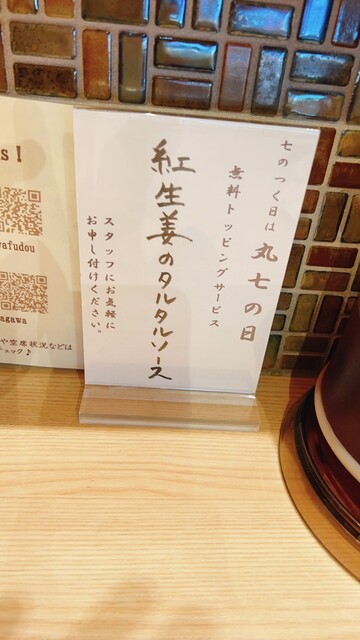 七のつく日は
丸七の日
無料トッピングサービス
紅生姜のタルタルソース
スタッフにお気軽に
お申し付けください。
s!
afudou
agawa
や空席状況などは
チェック♪